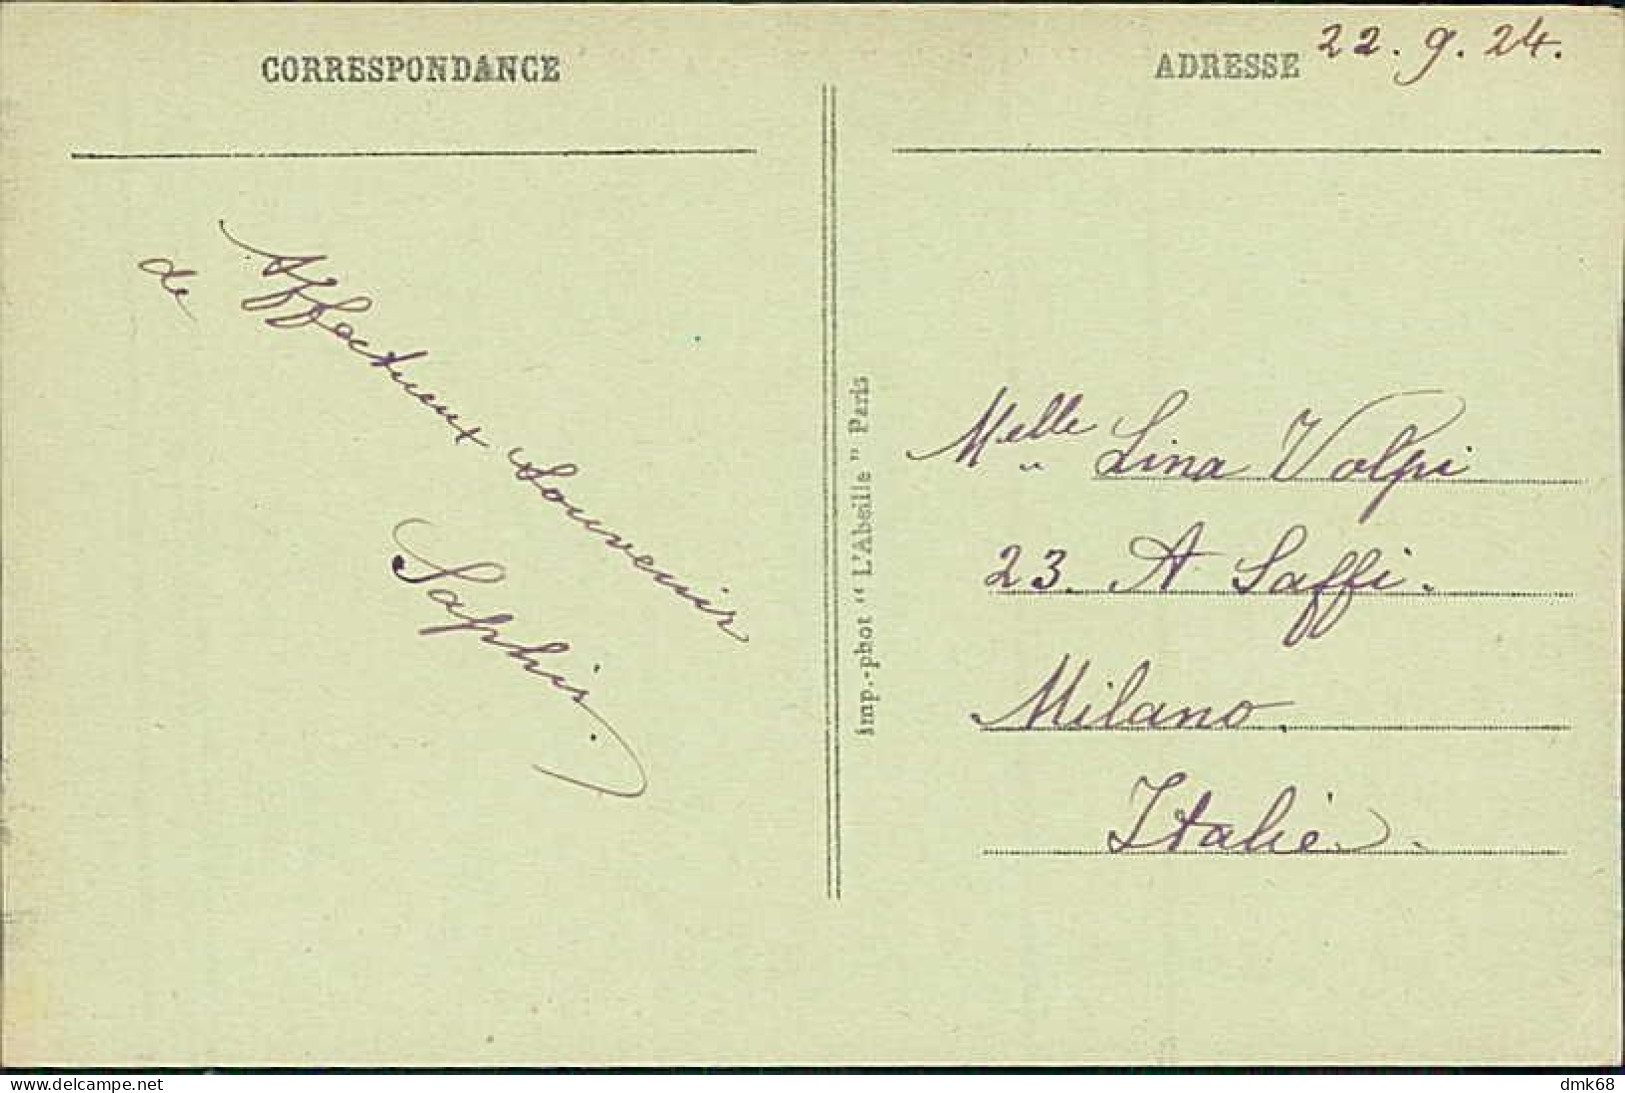 CORRESPONDANCE
ADRESSE 22.9.24.
Affectueux Souvenir
de
Saphir.
imp.-phot "L'Abeille" Paris
Melle Lina Volpi
23. A Saffi.
Milano.
Italie.
delcampe.net
dmk68